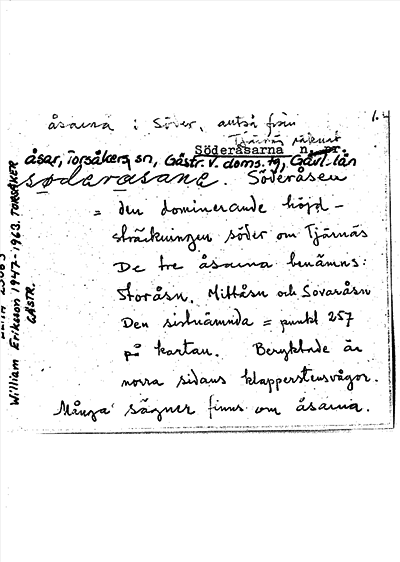 åsarna i Söder, antså från
Tjärnäs räknat
Söderåsarna n. pr.
åsar, Torsåkers sn, Gästr. V. doms. tg, Gävl. län
søderåsane. Söderåsen
= den dominerande höjd-
sträckningen söder om Tjärnäs
De tre åsarna benämns:
Storåsn, Mittåsn och Sovaråsn
Den sistnämnda = punkt 257
på kartan. Beryktade är
norra sidans klapperstensvågor.
Många sägner finns om åsarna.
William Eriksson 1947-1963. TORSÅKER
GÄSTR.